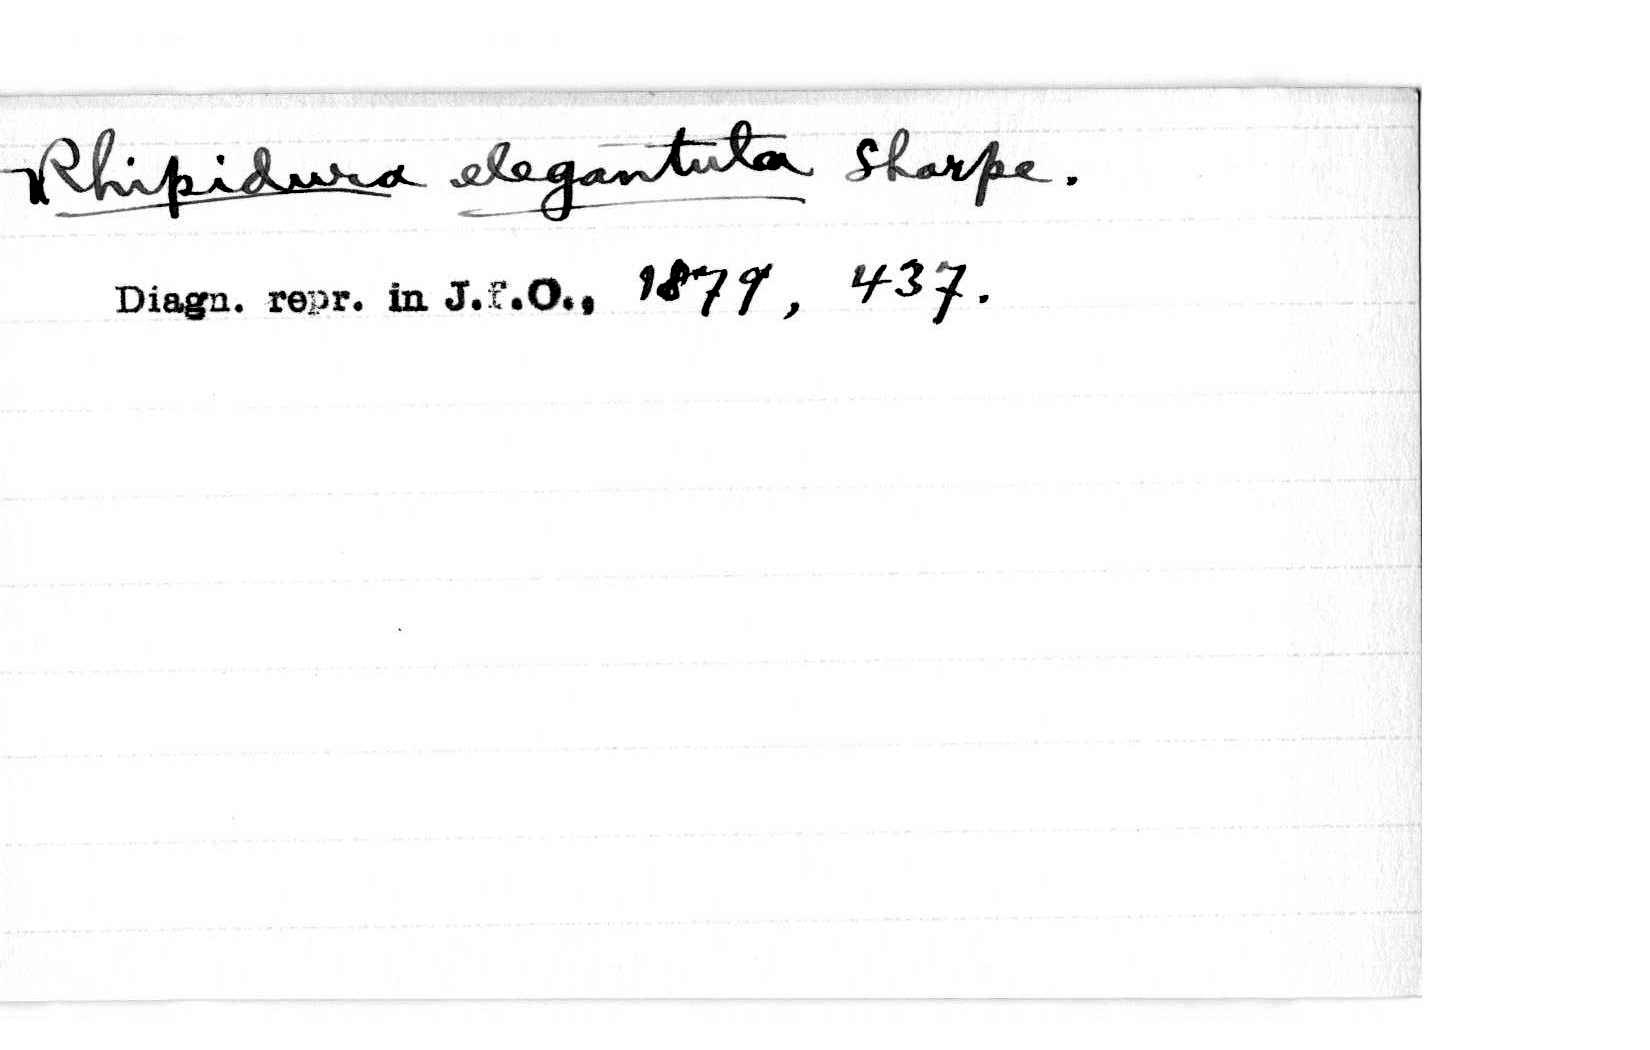 Rhipidura elegantula Sharpe.
Diagn. repr. in J.f.O., 1879, 437.